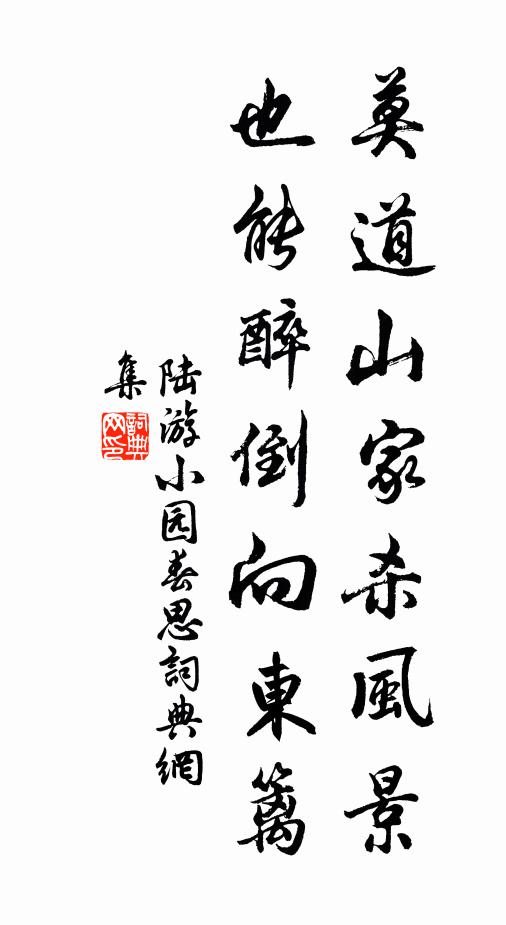 莫道山家杀風景
也能醉倒向東籬
陆游小园春思詞典網
集
詞典网印